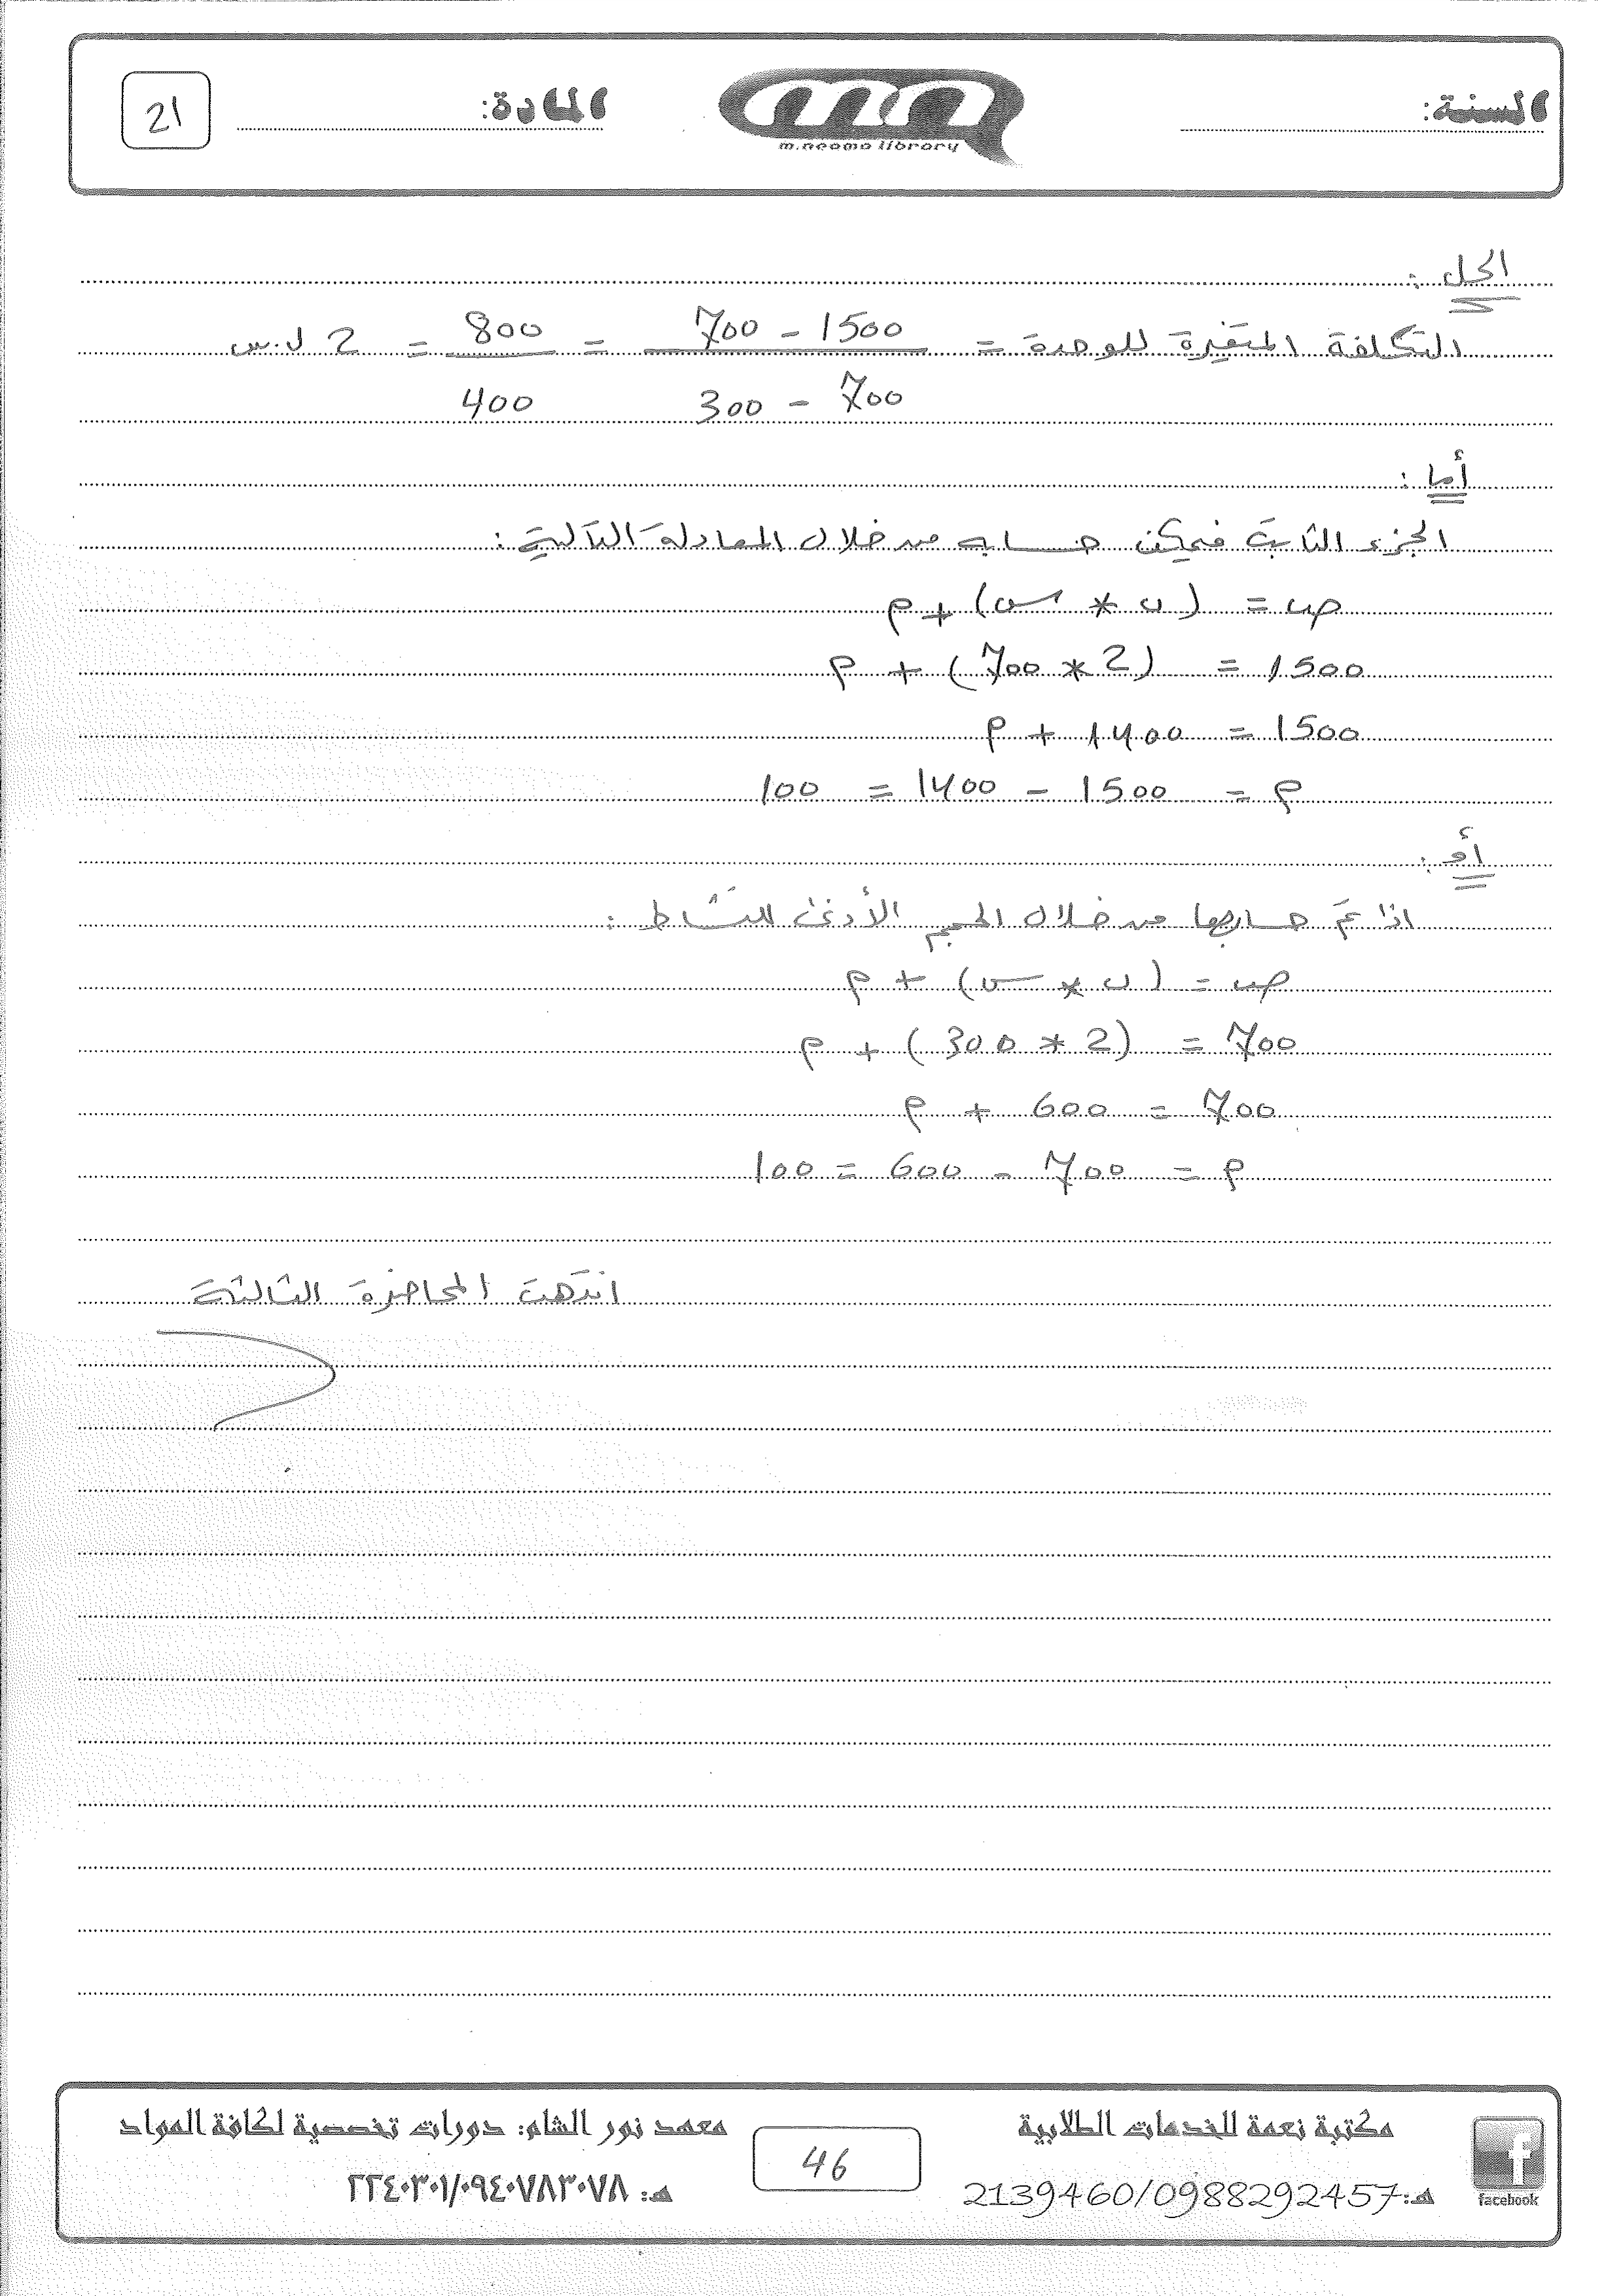 السنة:
m.neama library
المادة:
21
الحل :
التكلفة المتغيرة للوحدة = 1500 - 700 / 700 - 300 = 800 / 400 = 2 ل.س
أما :
الجزء الثابت فيمكن حسابه من خلال المعادلة التالية :
ص = (ب * س) + م
1500 = (2 * 700) + م
1500 = 1400 + م
م = 1500 - 1400 = 100
أو :
اذا تم حسابها من خلال الحجم الأدنى للنشاط :
ص = (ب * س) + م
700 = (2 * 300) + م
700 = 600 + م
م = 700 - 600 = 100
انتهت المحاضرة الثالثة
مكتبة نعمة للخدمات الطلابية
هـ: 2139460/0988292457
facebook
46
معهد نور الشام: دورات تخصصية لكافة المواد
هـ: ٢٢٤٠٣٠١/٠٩٤٠٧٨٣٠٧٨